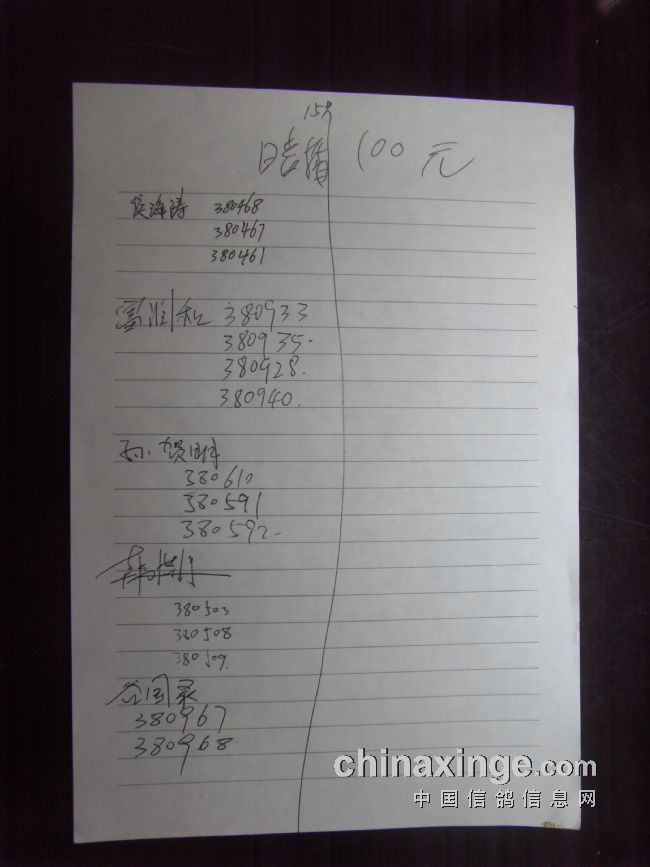 100元
380468
380467
380461
380933
380935.
380928.
380940.
380610
380591
380592.
380503
380508
380509.
谷国录
380967
380968
chinaxinge.com
中国信鸽信息网